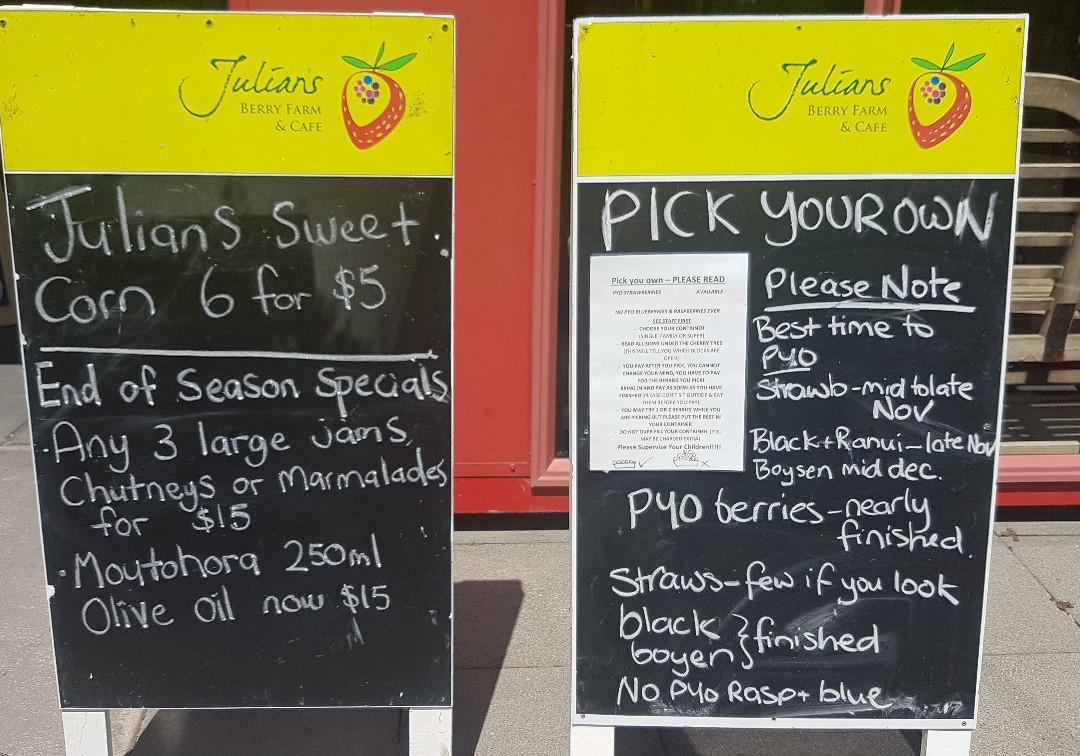 Julians
BERRY FARM
& CAFE
Julians Sweet
Corn 6 for $5
End of Season Specials
· Any 3 large jams,
Chutneys or Marmalades
for $15
· Moutohora 250ml
Olive oil now $15
Julians
BERRY FARM
& CAFE
PICK YOUR OWN
Pick you own – PLEASE READ
PYO STRAWBERRIES AVAILABLE
NO PYO BLUEBERRIES & RASPBERRIES EVER
- SEE STAFF FIRST
- CHOOSE YOUR CONTAINER
(SINGLE, FAMILY OR SUPER)
- READ ALL SIGNS UNDER THE CHERRY TREE
(THIS WILL TELL YOU WHICH BLOCKS ARE
OPEN)
- YOU PAY AFTER YOU PICK, YOU CANNOT
CHANGE YOUR MIND, YOU HAVE TO PAY
FOR THE BERRIES YOU PICK!
- BRING IN AND PAY AS SOON AS YOU HAVE
FINISHED (PLEASE DON'T SIT OUTSIDE & EAT
THEM BEFORE YOU PAY)
- YOU MAY TRY 1 OR 2 BERRIES WHILE YOU
ARE PICKING BUT PLEASE PUT THE REST IN
YOUR CONTAINER
- DO NOT OVER FILL YOUR CONTAINER, (YOU
MAY BE CHARGED EXTRA)
Please Supervise Your Children!!!!
Please Note
Best time to
PYO
Strawb - mid to late
Nov
Black + Ranui - late Nov
Boysen mid dec.
PYO berries - nearly
finished.
Straws - few if you look
black } finished
boyen
No PYO Rasp + blue